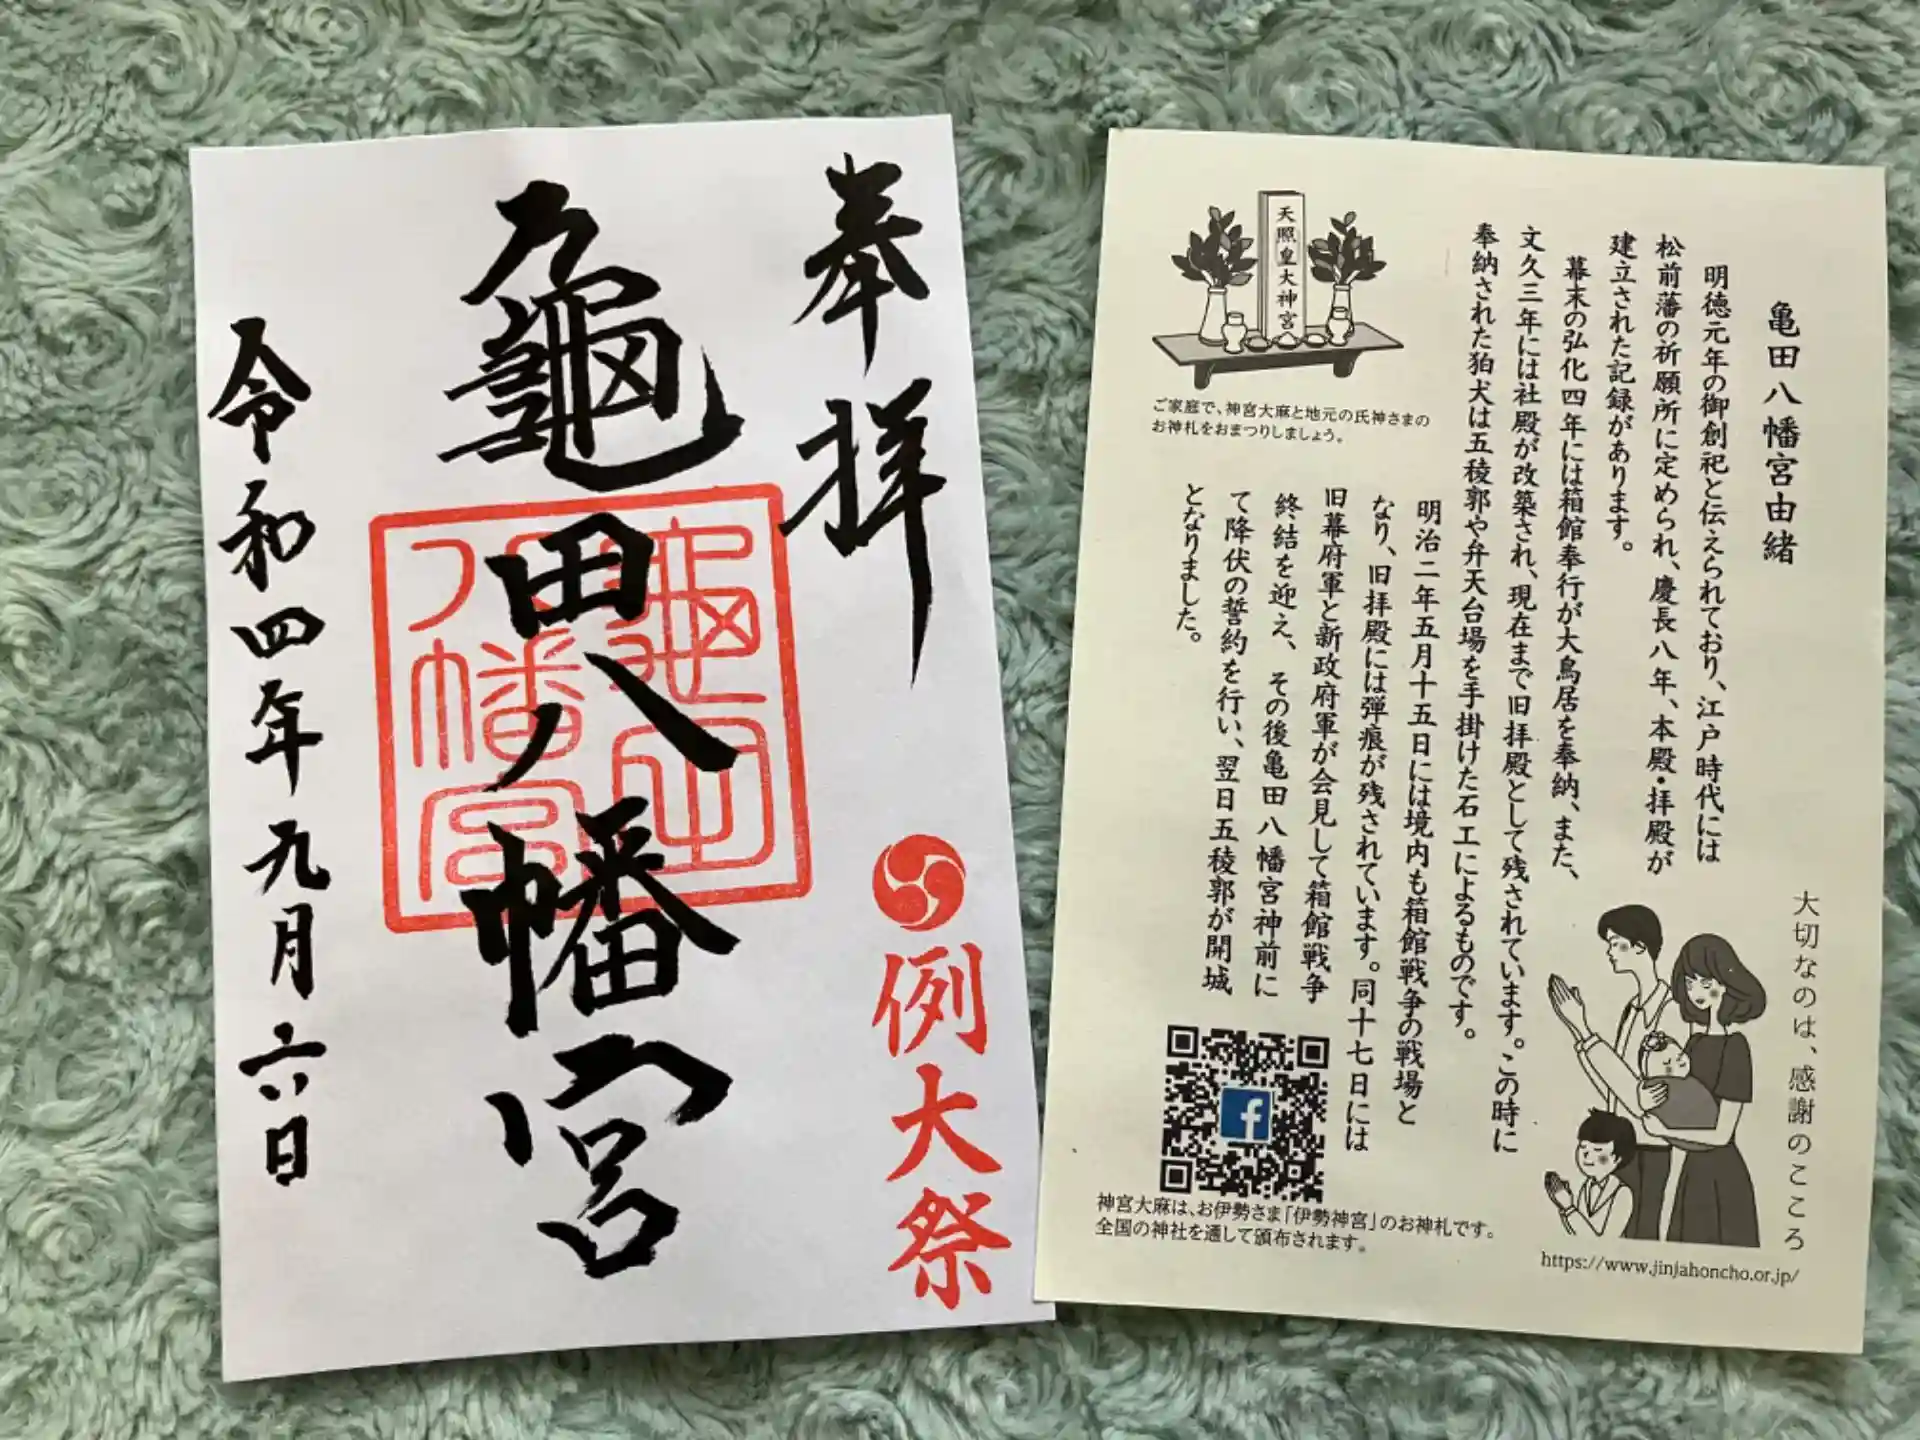 奉拝
龜田八幡宮
亀田八幡宮
例大祭
令和四年九月六日
亀田八幡宮由緒
明徳元年の御創祀と伝えられており、江戸時代には
松前藩の祈願所に定められ、慶長八年、本殿・拝殿が
建立された記録があります。
幕末の弘化四年には箱館奉行が大鳥居を奉納、また、
文久三年には社殿が改築され、現在まで旧拝殿として残されています。この時に
奉納された狛犬は五稜郭や弁天台場を手掛けた石工によるものです。
明治二年五月十五日には境内も箱館戦争の戦場と
なり、旧拝殿には弾痕が残されています。同十七日には
旧幕府軍と新政府軍が会見して箱館戦争
終結を迎え、その後亀田八幡宮神前に
て降伏の誓約を行い、翌日五稜郭が開城
となりました。
天照皇大神宮
ご家庭で、神宮大麻と地元の氏神さまの
お神札をおまつりしましょう。
大切なのは、感謝のこころ
神宮大麻は、お伊勢さま「伊勢神宮」のお神札です。
全国の神社を通して頒布されます。
https://www.jinjahoncho.or.jp/